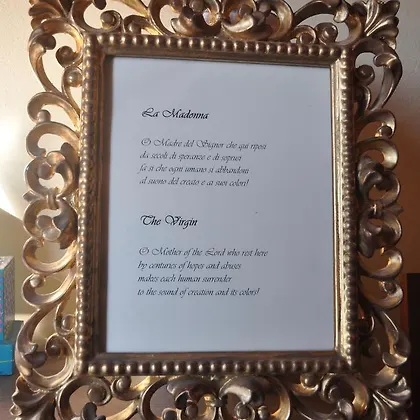 La Madonna
O Madre del Signor che qui riposi
da secoli di speranze e di soprusi
fa sì che ogni umano si abbandoni
al suono del creato e ai suoi colori!
The Virgin
O Mother of the Lord who rest here
by centuries of hopes and abuses
makes each human surrender
to the sound of creation and its colors!